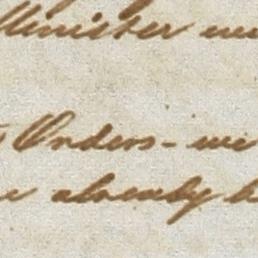 Minister
Orders - we
already